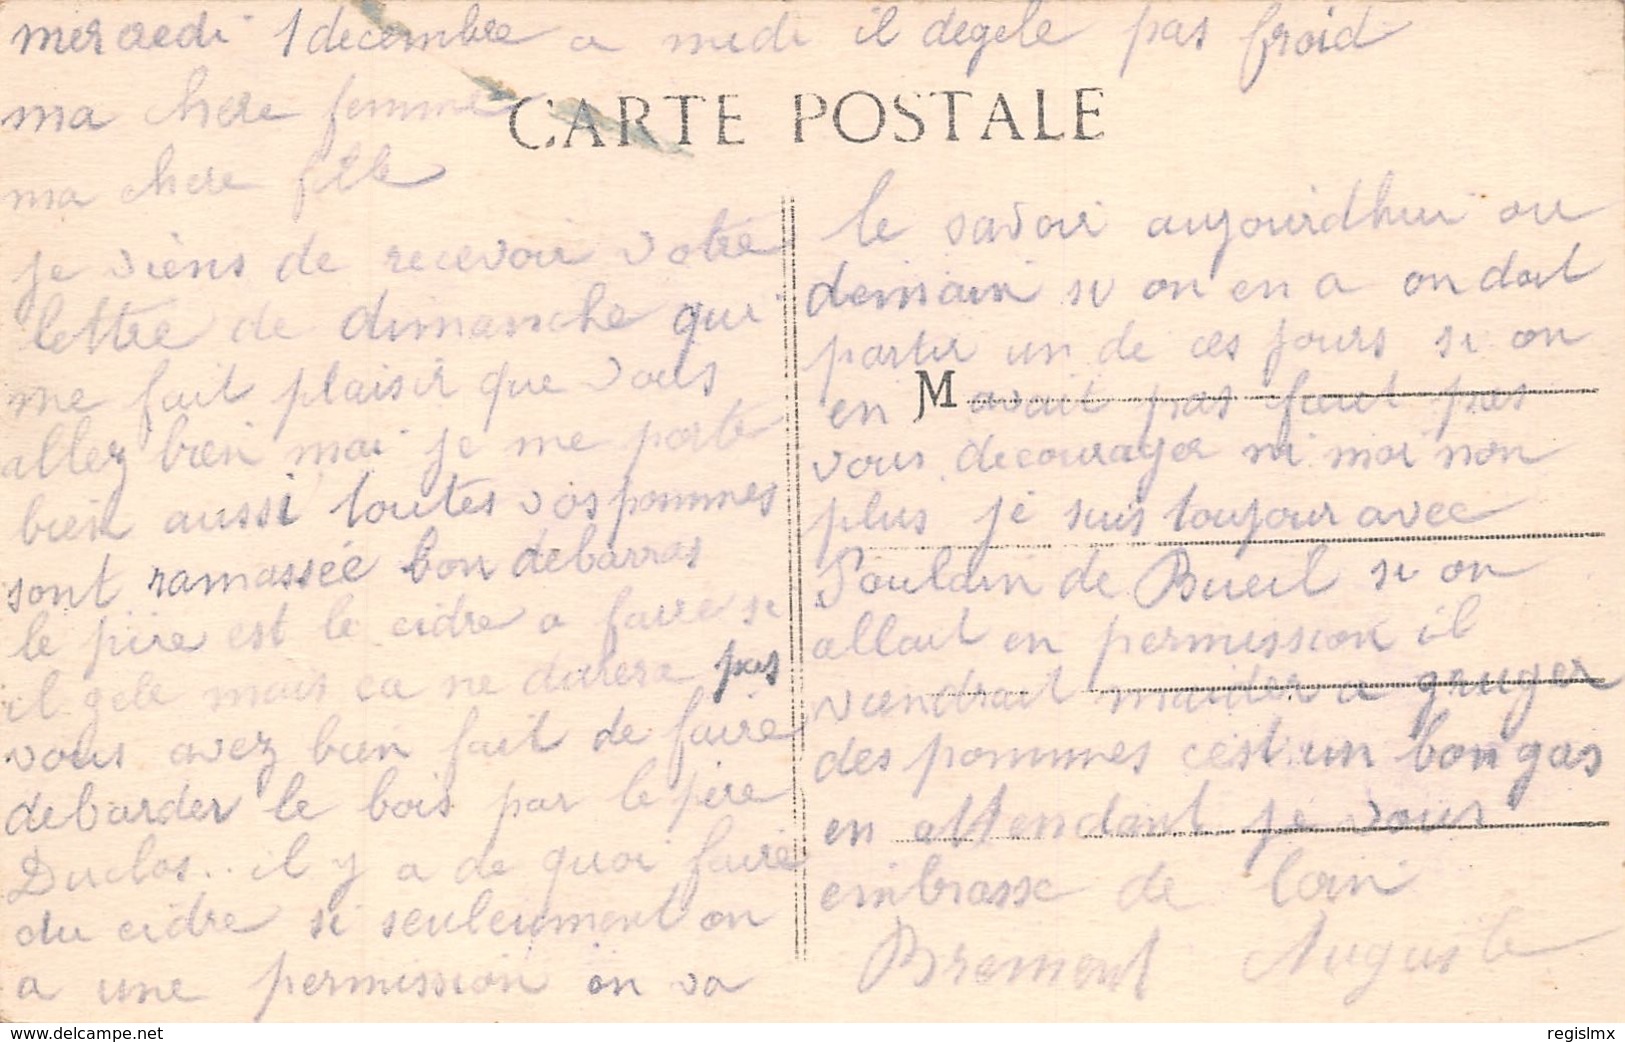 mercredi 1 decembre a midi il degele pas froid
CARTE POSTALE
ma chere femme
ma chere fille
je viens de recevoir votre
lettre de dimanche qui
me fait plaisir que vous
allez bien moi je me porte
bien aussi toutes vos pommes
sont ramassée bon debarras
le pire est le cidre a faire si
il gele mais ca ne durera pas
vous avez bien fait de faire
debarder le bois par le père
Duclos.. il y a de quoi faire
du cidre si seulement on
a une permission on va
le savoir aujourdhui ou
demain si on en a on doit
partir un de ces jours si on
en avait pas faut pas
M
vous decourager ni moi non
plus je suis toujour avec
Poulain de Bueil si on
allait en permission il
viendrait maider a gruger
des pommes c'est un bon gas
en attendant je vous
embrasse de loin
Bremont Auguste
www.delcampe.net
regislmx